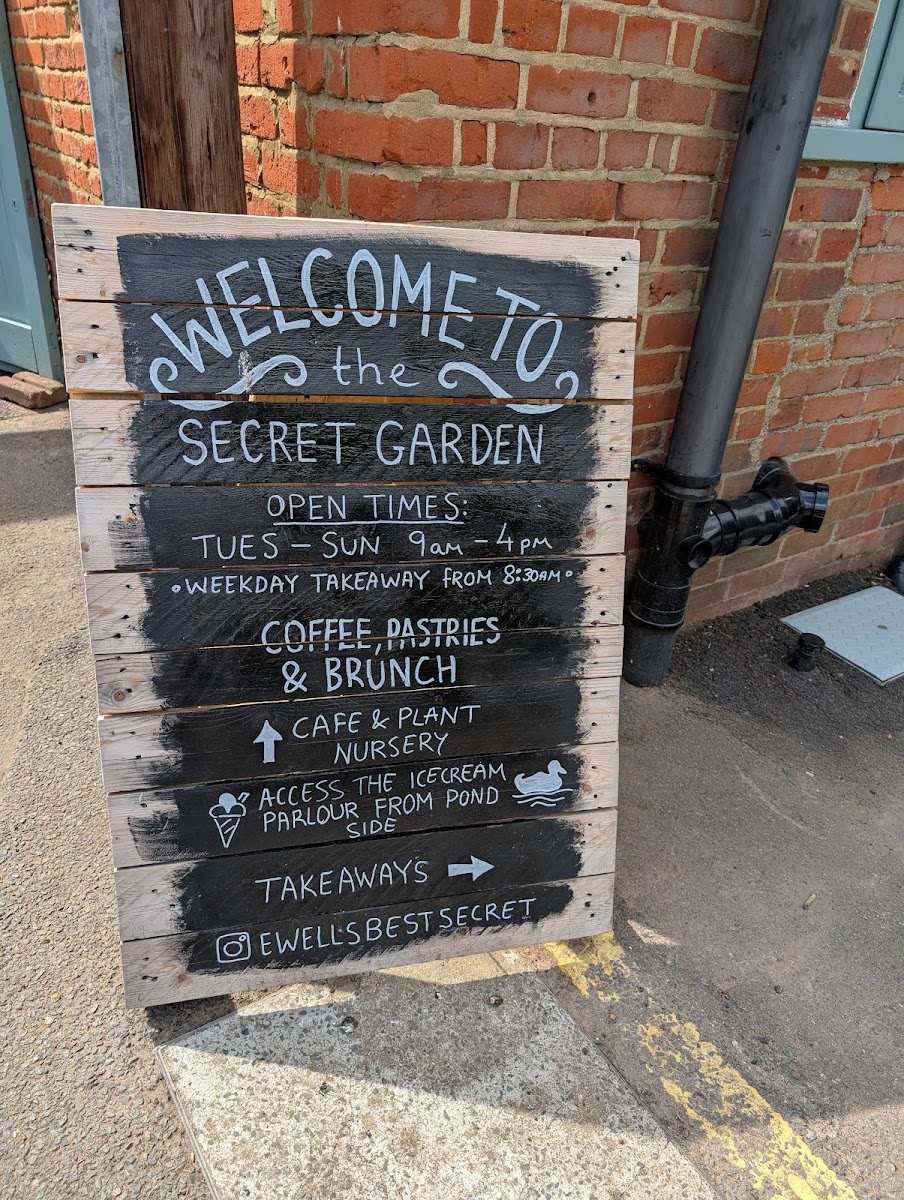 WELCOME TO
the
SECRET GARDEN
OPEN TIMES:
TUES – SUN 9am – 4pm
•WEEKDAY TAKEAWAY FROM 8:30AM•
COFFEE, PASTRIES
& BRUNCH
CAFE & PLANT
NURSERY
ACCESS THE ICECREAM
PARLOUR FROM POND
SIDE
TAKEAWAYS
EWELLSBESTSECRET